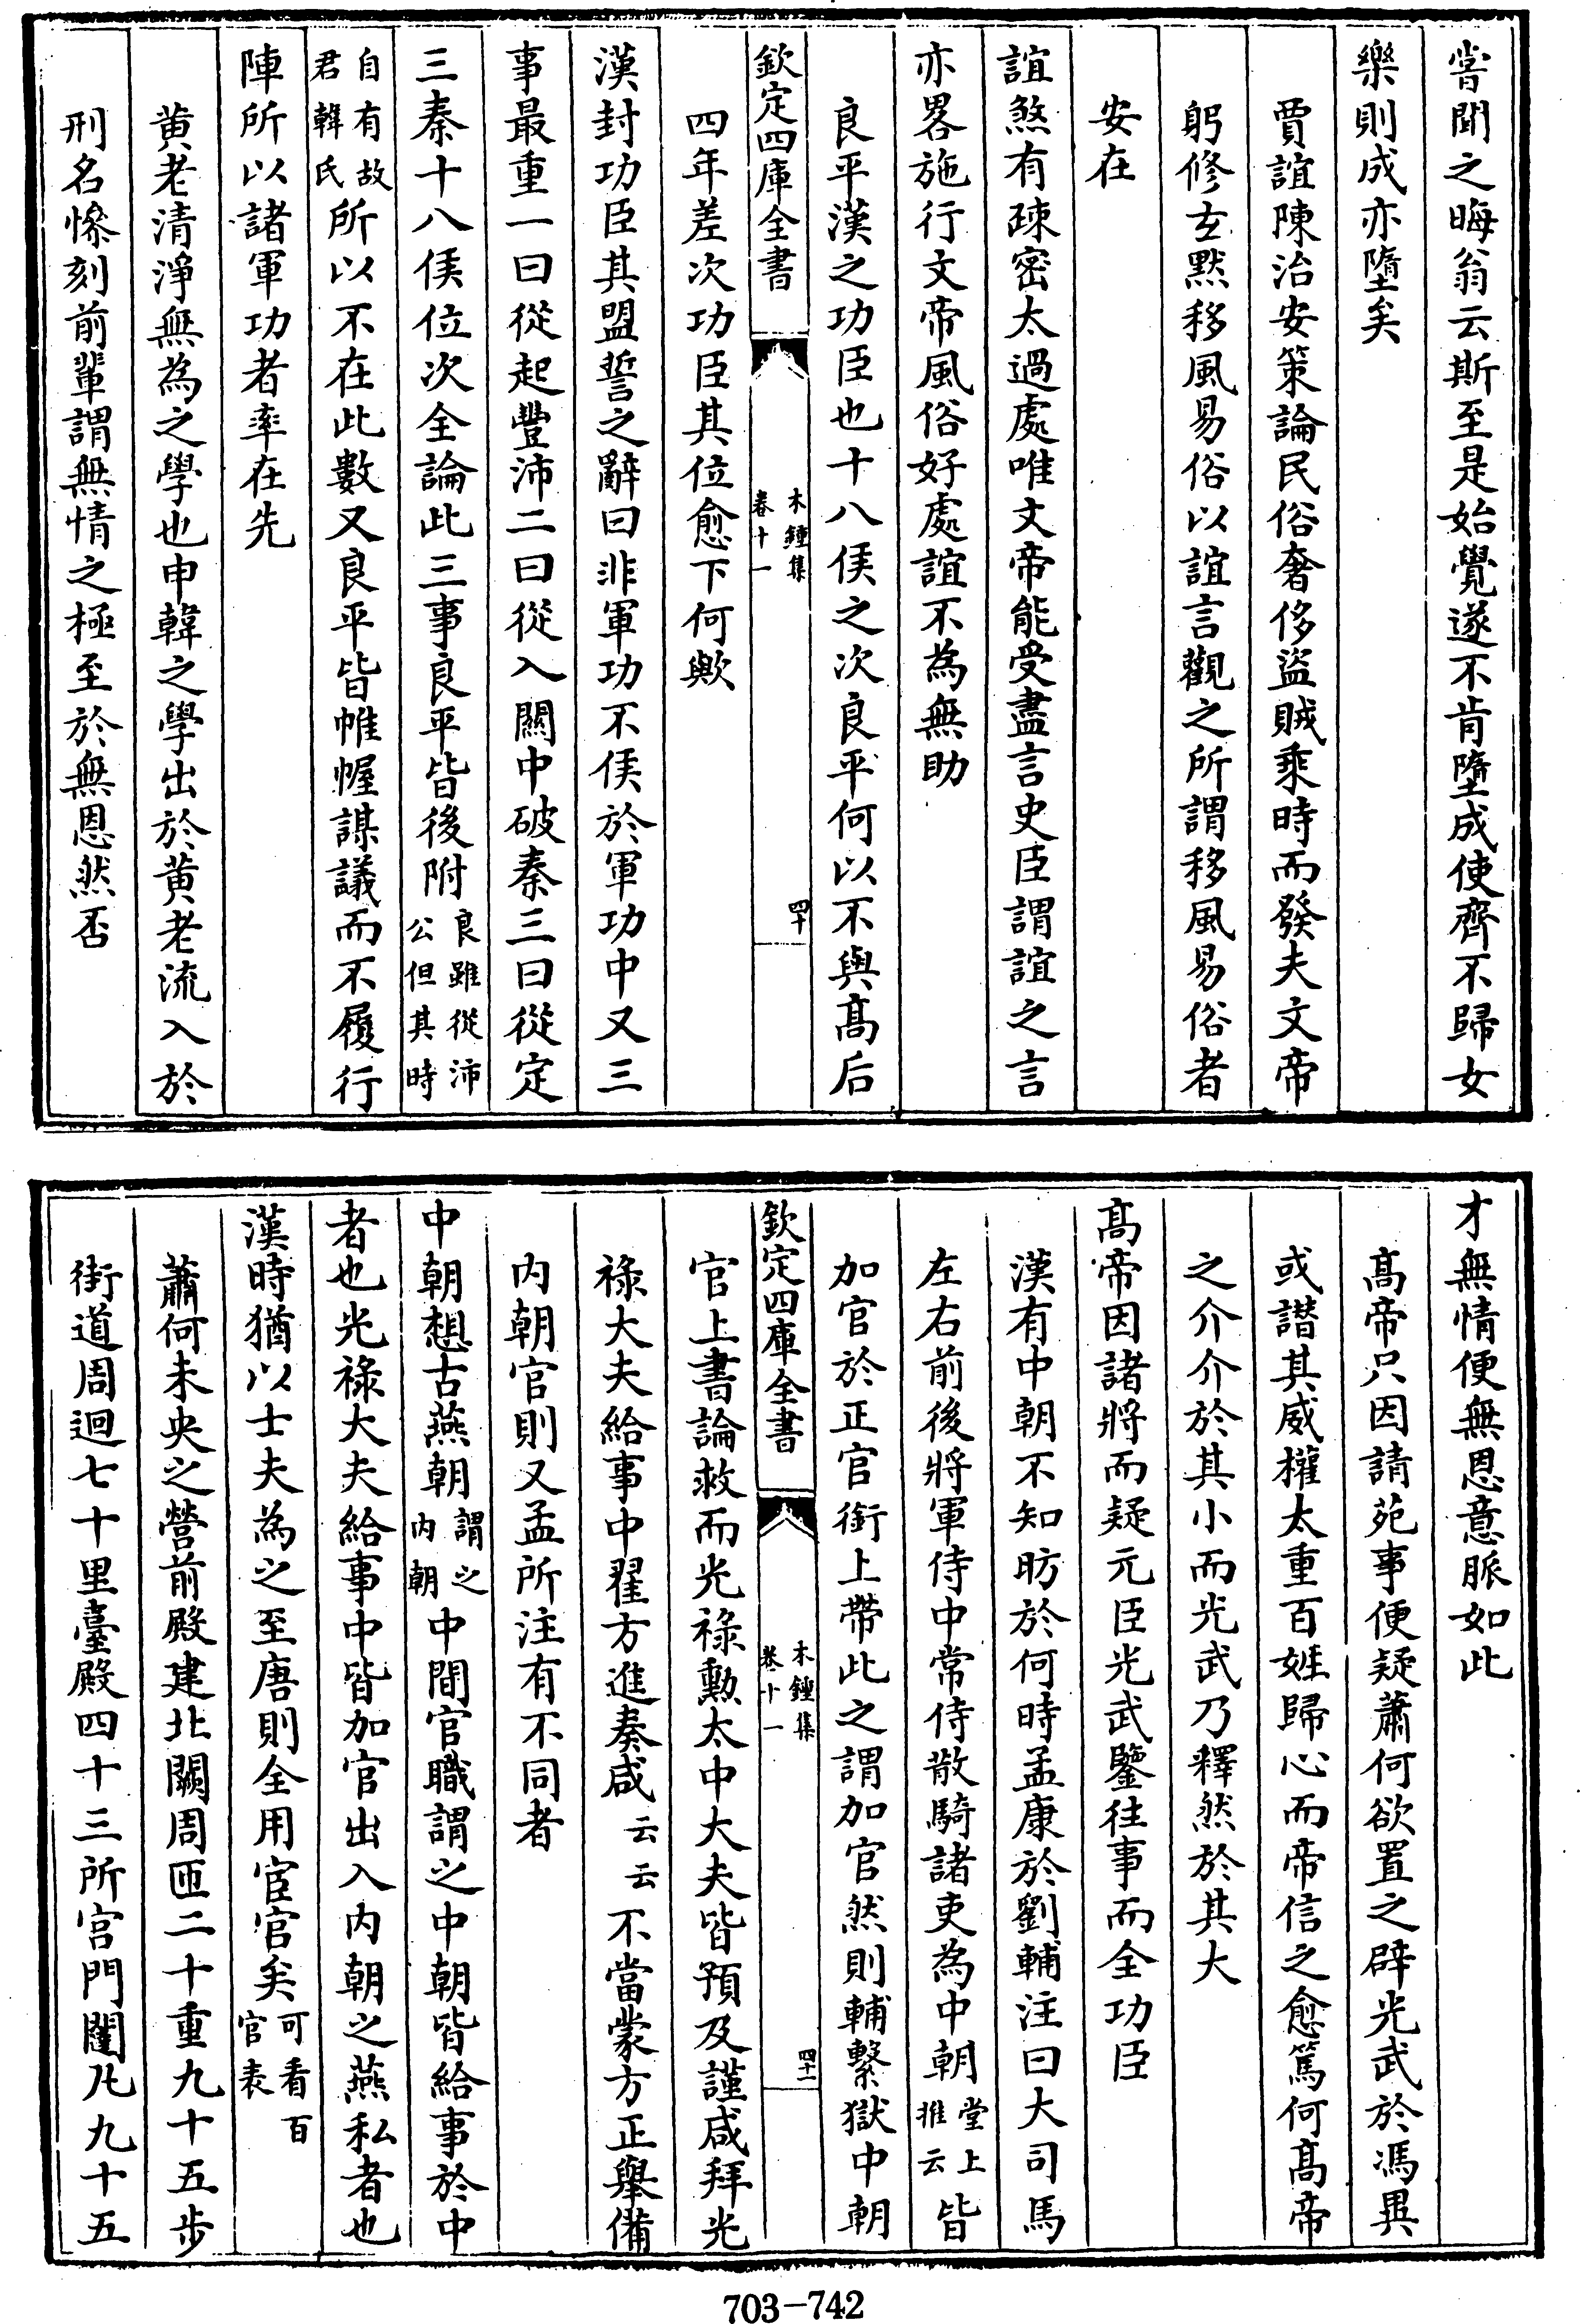 甞聞之晦翁云斯至是始覺遂不肯墮成使齊不歸女
樂則成亦墮矣
賈誼陳治安策論民俗奢侈盜賊乘時而發夫文帝
躬修玄黙移風易俗以誼言觀之所謂移風易俗者
安在
誼煞有疎密太過處唯文帝能受盡言史臣謂誼之言
亦畧施行文帝風俗好處誼不為無助
良平漢之功臣也十八侯之次良平何以不與髙后
欽定四庫全書
木鍾集
卷十一
四十
四年差次功臣其位愈下何歟
漢封功臣其盟誓之辭曰非軍功不侯於軍功中又三
事最重一曰從起豐沛二曰從入關中破秦三曰從定
三秦十八侯位次全論此三事良平皆後附良雖從沛公但其時
自有故君韓氏所以不在此數又良平皆帷幄謀議而不履行
陣所以諸軍功者率在先
黄老清淨無為之學也申韓之學出於黄老流入於
刑名慘刻前輩謂無情之極至於無恩然否
才無情便無恩意脈如此
髙帝只因請苑事便疑蕭何欲置之辟光武於馮異
或譖其威權太重百姓歸心而帝信之愈篤何髙帝
之介介於其小而光武乃釋然於其大
髙帝因諸將而疑元臣光武鑒往事而全功臣
漢有中朝不知昉於何時孟康於劉輔注曰大司馬
左右前後將軍侍中常侍散騎諸吏為中朝堂上推云皆
加官於正官銜上帶此之謂加官然則輔繫獄中朝
欽定四庫全書
木鍾集
卷十一
四十一
官上書論救而光祿勲太中大夫皆預及謹咸拜光
祿大夫給事中翟方進奏咸云云不當蒙方正舉備
内朝官則又孟所注有不同者
中朝想古燕朝謂之内朝中間官職謂之中朝皆給事於中
者也光祿大夫給事中皆加官出入内朝之燕私者也
漢時猶以士夫為之至唐則全用宦官矣可看百官表
蕭何未央之營前殿建北闕周匝二十重九十五步
街道周迴七十里臺殿四十三所宫門闥凡九十五
703-742